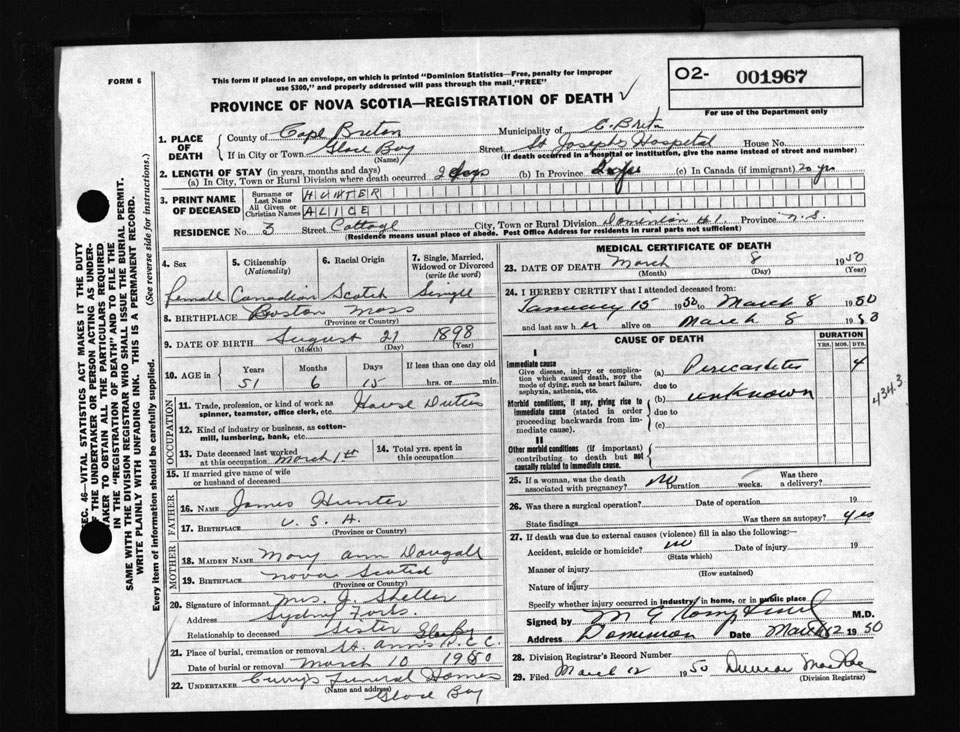 FORM 6
This form if placed in an envelope, on which is printed "Dominion Statistics—Free, penalty for improper
use $300," and properly addressed will pass through the mail, "FREE"
O2- 001967
For use of the Department only
PROVINCE OF NOVA SCOTIA—REGISTRATION OF DEATH ✓
1. PLACE OF DEATH
County of Cape Breton Municipality of C. Bret
If in City or Town Glace Bay Street St Josephs Hospital House No.
(Name) (If death occurred in a hospital or institution, give the name instead of street and number)
2. LENGTH OF STAY (in years, months and days)
(a) In City, Town or Rural Division where death occurred 2 days (b) In Province (c) In Canada (if immigrant) 20 yrs
3. PRINT NAME OF DECEASED
Surname or Last Name HUNTER
All Given or Christian Names ALICE
RESIDENCE No. 3 Street Cottage City, Town or Rural Division Dominion #1. Province N.S.
(Residence means usual place of abode. Post Office Address for residents in rural parts not sufficient)
4. Sex
5. Citizenship (Nationality)
6. Racial Origin
7. Single, Married, Widowed or Divorced (write the word)
Female Canadian Scotch Single
8. BIRTHPLACE Boston Mass
(Province or Country)
9. DATE OF BIRTH August 21 1898
(Month) (Day) (Year)
10. AGE in Years Months Days If less than one day old
51 6 15 hrs. or min.
OCCUPATION
11. Trade, profession or kind of work as spinner, teamster, office clerk, etc. House Duties
12. Kind of industry or business, as cotton-mill, lumbering, bank, etc.
13. Date deceased last worked at this occupation March 1st
14. Total yrs. spent in this occupation
15. If married give name of wife or husband of deceased
FATHER
16. NAME James Hunter
17. BIRTHPLACE U. S. A.
(Province or Country)
MOTHER
18. MAIDEN NAME Mary Ann Dougall
19. BIRTHPLACE Nova Scotia
(Province or Country)
20. Signature of informant Mrs. J. Sheller
Address Sydney Forks.
Relationship to deceased Sister
21. Place of burial, cremation or removal St. Ann's R.C.C. Glace Bay
Date of burial or removal March 10 1950
22. UNDERTAKER Curry's Funeral Homes
(Name and address) Glace Bay
MEDICAL CERTIFICATE OF DEATH
23. DATE OF DEATH March 8 1950
(Month) (Day) (Year)
24. I HEREBY CERTIFY that I attended deceased from:
January 15 1950 to March 8 1950
and last saw her alive on March 8 1950
CAUSE OF DEATH
DURATION
YRS. MOS. DYS.
I
Immediate cause
Give disease, injury or complication which caused death, NOT the mode of dying, such as heart failure, asphyxia, asthenia, etc.
(a) Pericarditis 4
due to
(b) unknown
due to
(c)
Morbid conditions, if any, giving rise to immediate cause (stated in order proceeding backwards from immediate cause).
II
Other morbid conditions (if important) contributing to death but not causally related to immediate cause.
4343
25. If a woman, was the death associated with pregnancy? no Duration weeks. Was there a delivery?
26. Was there a surgical operation? Date of operation 19
State findings Was there an autopsy? yes
27. If death was due to external causes (violence) fill in also the following:—
Accident, suicide or homicide? no Date of injury 19
(State which)
Manner of injury
(How sustained)
Nature of injury
Specify whether injury occurred in industry, in home, or in public place
Signed by M.D.
Address Dominion Date March 12 1950
28. Division Registrar's Record Number
29. Filed March 12 1950 Duncan MacRae
(Division Registrar)
SEC. 46—VITAL STATISTICS ACT MAKES IT THE DUTY
OF THE UNDERTAKER OR PERSON ACTING AS UNDER-
TAKER TO OBTAIN ALL THE PARTICULARS REQUIRED
IN THE "REGISTRATION OF DEATH" AND TO FILE THE
SAME WITH THE DIVISION REGISTRAR WHO SHALL ISSUE THE BURIAL PERMIT.
WRITE PLAINLY WITH UNFADING INK. THIS IS A PERMANENT RECORD.
Every item of information should be carefully supplied. (See reverse side for instructions.)